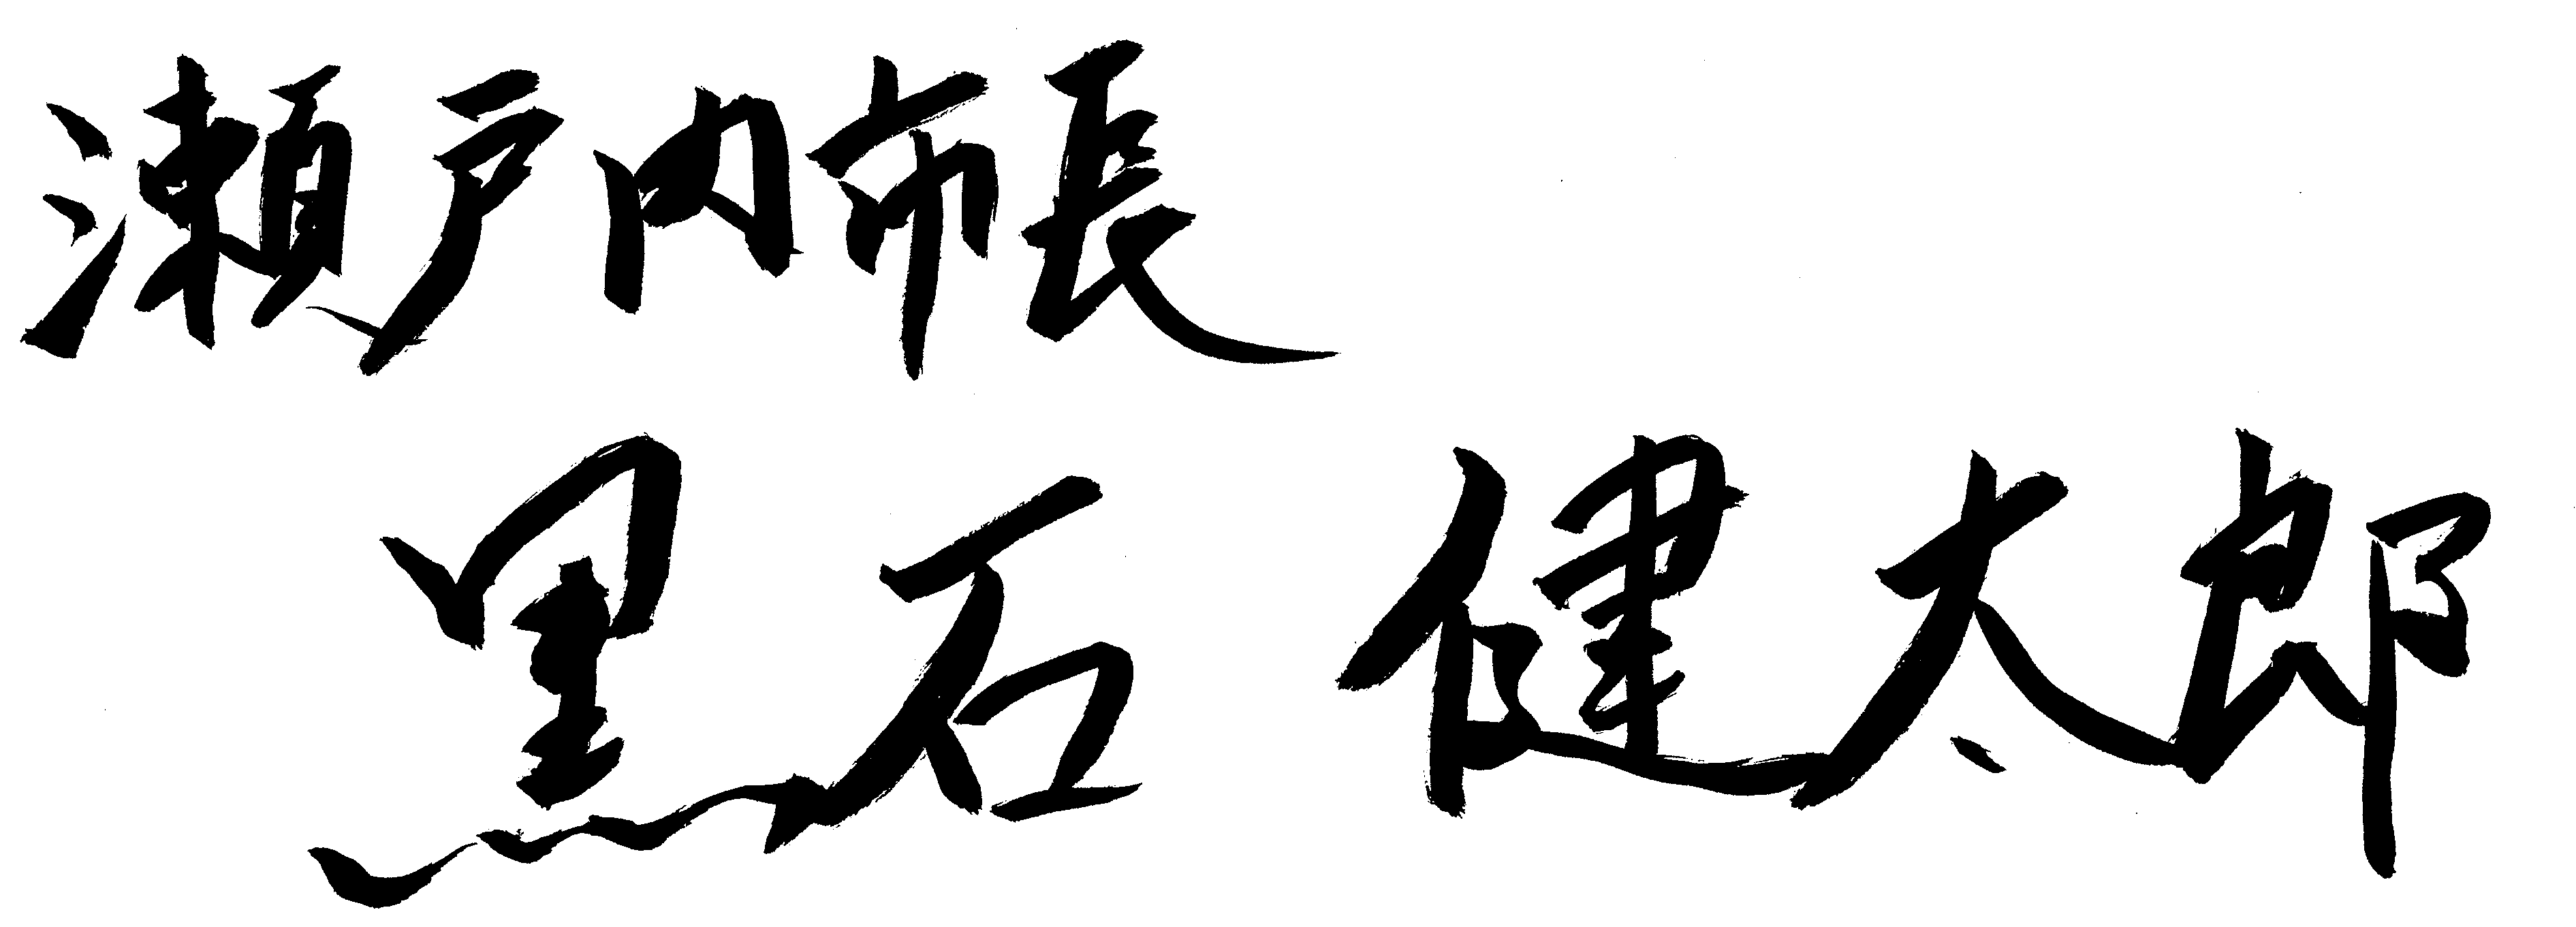 瀬戸内市長
黒石 健太郎